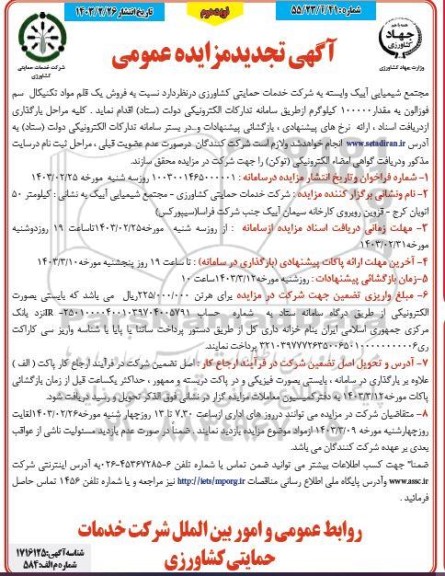 شماره: ۵۵/۲۳/۱/۲۱
نوبت دوم
تاریخ انتشار ۱۴۰۳/۲/۲۶
آگهی تجدیدمزایده عمومی
جهاد
کشاورزی
وزارت جهاد کشاورزی
شرکت خدمات حمایتی
کشاورزی
مجتمع شیمیایی آبیک وابسته به شرکت خدمات حمایتی کشاورزی درنظردارد نسبت به فروش یک قلم مواد تکنیکال سم
فوزالون به مقدار۱۰۰۰۰۰ کیلوگرم ازطریق سامانه تدارکات الکترونیکی دولت (ستاد) اقدام نماید . کلیه مراحل بارگذاری
ازدریافت اسناد ، ارائه نرخ های پیشنهادی ، بازگشائی پیشنهادات و..در بستر سامانه تدارکات الکترونیکی دولت (ستاد) به
آدرس www.setadiran.ir انجام خواهدشد. ولازم است شرکت کنندگان درصورت عدم عضویت قبلی ، مراحل ثبت نام درسایت
مذکور ودریافت گواهی امضاء الکترونیکی (توکن) را جهت شرکت در مزایده محقق سازند.
۱- شماره فراخوان و تاریخ انتشار مزایده درسامانه : ۱۰۰۳۰۰۱۴۶۵۰۰۰۰۰۱ روزسه شنبه مورخه ۱۴۰۳/۰۲/۲۵
۲- نام ونشانی برگزار کننده مزایده : شرکت خدمات حمایتی کشاورزی - مجتمع شیمیایی آبیک به نشانی : کیلومتر ۵۰
اتوبان کرج - قزوین روبروی کارخانه سیمان آبیک جنب شرکت فراسا(سیپورکس)
۳- مهلت زمانی دریافت اسناد مزایده ازسامانه : از روزسه شنبه مورخه ۱۴۰۳/۰۲/۲۵تاساعت ۱۹ روزدوشنبه
مورخه ۱۴۰۳/۰۲/۳۱
۴- آخرین مهلت ارائه پاکات پیشنهادی (بارگذاری در سامانه) : تا ساعت ۱۹ روز پنجشنبه مورخه ۱۴۰۳/۳/۱۰
۵-زمان بازگشائی پیشنهادات : روزشنبه مورخه ۱۴۰۳/۳/۱۲ساعت ۱۰
۶- مبلغ واریزی تضمین جهت شرکت در مزایده برای هرتن ۲۲۵/۰۰۰/۰۰۰ریال می باشد که بایستی بصورت
الکترونیکی از طریق درگاه سامانه ستاد به شماره حساب
نزد بانک
مرکزی جمهوری اسلامی ایران بنام خزانه داری کل از طریق دستور پرداخت ساتنا یا پایا با شناسه واریز سی کاراکت
پرداخت نمایند.
۷- آدرس و تحویل اصل تضمین شرکت در فرآیند ارجاع کار : اصل تضمین شرکت در فرآیند ارجاع کار پاکت ( الف )
علاوه بر بارگذاری در سامانه ، بایستی بصورت فیزیکی و در پاکت دربسته و ممهور ، حداکثر یکساعت قبل از زمان بازگشائی
پاکات مورخه ۱۴۰۳/۳/۱۲ به دفترکمیسیون معاملات مزایده گزار در نشانی فوق الذکر تحویل و رسید دریافت شود.
۸- متقاضیان شرکت در مزایده می توانند درروز های اداری ازساعت ۷.۳۰ تا ۱۳ روزچهار شنبه مورخه ۱۴۰۳/۰۲/۲۶لغایت
روزچهارشنبه مورخه ۱۴۰۳/۰۳/۰۹ ازمواد موضوع مزایده بازدید نمایند . ضمنا در صورت عدم بازدید مسئولیت ناشی از عواقب
بعدی بر عهده شرکت کنندگان می باشد.
ضمنا" جهت کسب اطلاعات بیشتر می توانید ضمن تماس با شماره تلفن ۶-۰۲۶۴۵۳۶۷۲۸۵به آدرس اینترنتی شرکت
www.assc.ir وآدرس پایگاه ملی اطلاع رسانی مناقصات http://iets/mporg.ir نیز مراجعه و یا شماره تلفن ۱۴۵۶ تماس حاصل
فرمائید .
روابط عمومی و امور بین الملل شرکت خدمات
حمایتی کشاورزی
شناسه آگهی: ۱۷۱۶۱۲۵
شماره م الف: ۵۸۴